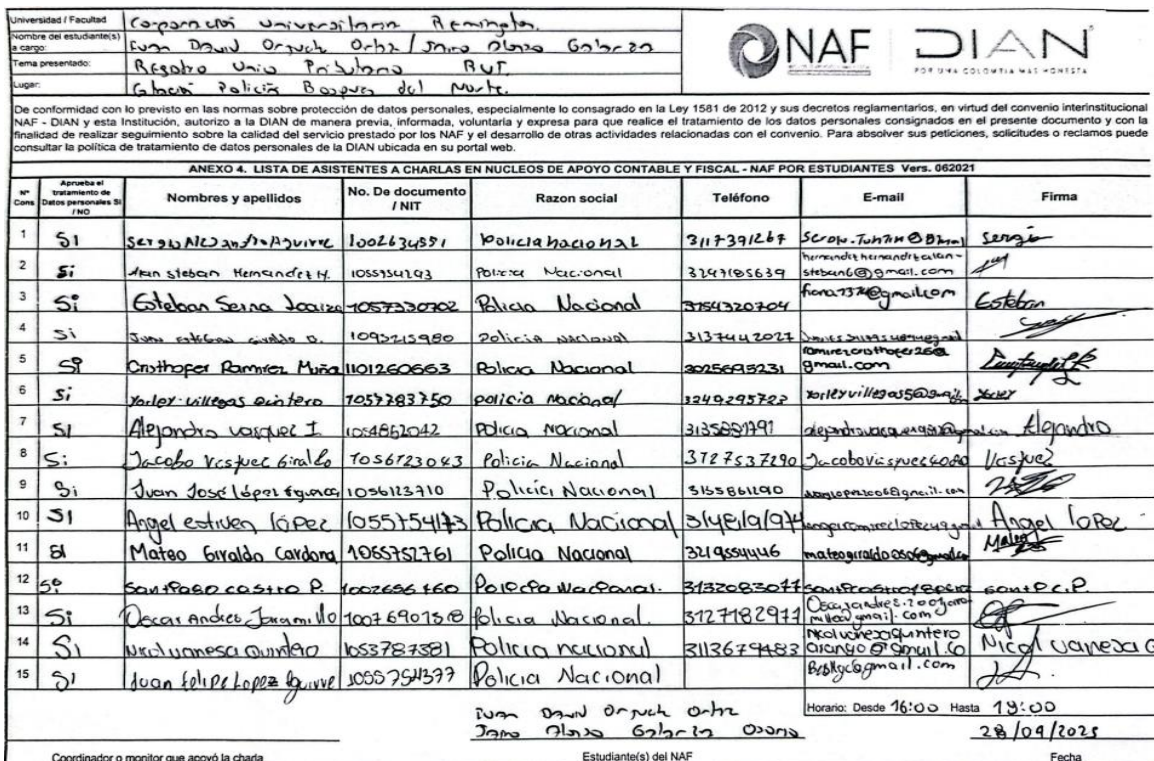 Universidad / Facultad Corporación universitaria Remington.
Nombre del estudiante(s) a cargo: Ivan David Orjuela Ortiz / Jairo Alonso Galarza
Tema presentado: Registro Unico Tributario RUT.
Lugar: Policia Bosques del Norte.
NAF DIAN
POR UNA COLOMBIA MÁS HONESTA
De conformidad con lo previsto en las normas sobre protección de datos personales, especialmente lo consagrado en la Ley 1581 de 2012 y sus decretos reglamentarios, en virtud del convenio interinstitucional
NAF - DIAN y esta Institución, autorizo a la DIAN de manera previa, informada, voluntaria y expresa para que realice el tratamiento de los datos personales consignados en el presente documento y con la
finalidad de realizar seguimiento sobre la calidad del servicio prestado por los NAF y el desarrollo de otras actividades relacionadas con el convenio. Para absolver sus peticiones, solicitudes o reclamos puede
consultar la política de tratamiento de datos personales de la DIAN ubicada en su portal web.
ANEXO 4. LISTA DE ASISTENTES A CHARLAS EN NUCLEOS DE APOYO CONTABLE Y FISCAL - NAF POR ESTUDIANTES Vers. 062021
N° Cons Aprueba el tratamiento de Datos personales SI / NO Nombres y apellidos No. De documento / NIT Razon social Teléfono E-mail Firma
1 SI Sergio Alejandro Aguirre 1002634551 Policia nacional 3117391267 Sergio
2 Si Alan steban Hernandez H. 1055754293 Policia Nacional 3247185639 hernandezhernandezalan-steban6@gmail.com
3 Si Esteban Serna Loaiza 1057330702 Policia Nacional 3754320704 Esteban
4 Si Juan esteban Giraldo O. 1093215980 Policia Nacional 3137442027
5 Si Cristhofer Ramirez Muña 1101260663 Policia Nacional 3025695231 ramirezcristhofer26@gmail.com
6 Si Yorley villegas Quintero 1057783750 policia nacional 3249295723 yorleyvillegas5@gmail Yorley
7 SI Alejandro vasquez I 1054862042 Policia Nacional Alejandro
8 Si Jacobo Vasquez Giraldo 1056123043 Policia Nacional 3127537290 Vasquez
9 Si Juan José lópez 1056123710 Policía Nacional 3155861290
10 SI Angel estiven lópez 1055754173 Policia Nacional Angel lopez
11 SI Mateo Giraldo Cardona 1055752761 Policia Nacional 3219554446 Mateo
12 Si Santiago castro P. 1002656760 Policia Nacional. 3132083077 Santi C.P.
13 Si Oscar Andres Jaramillo policia Nacional. 3127182977
14 Si Nikol vanesa Quintero 1053787381 Policia nacional 3113679483 Nikolvanesaquintero arango@gmail.co Nicol vanesa Q
15 SI Juan felipe Lopez Aguirre 1055754377 Policia Nacional
Horario: Desde 16:00 Hasta 19:00
Ivan David Orjuela Ortiz
Jairo Alonso Galarza Osorio 28/04/2025
Coordinador o monitor que apoyó la charla Estudiante(s) del NAF Fecha